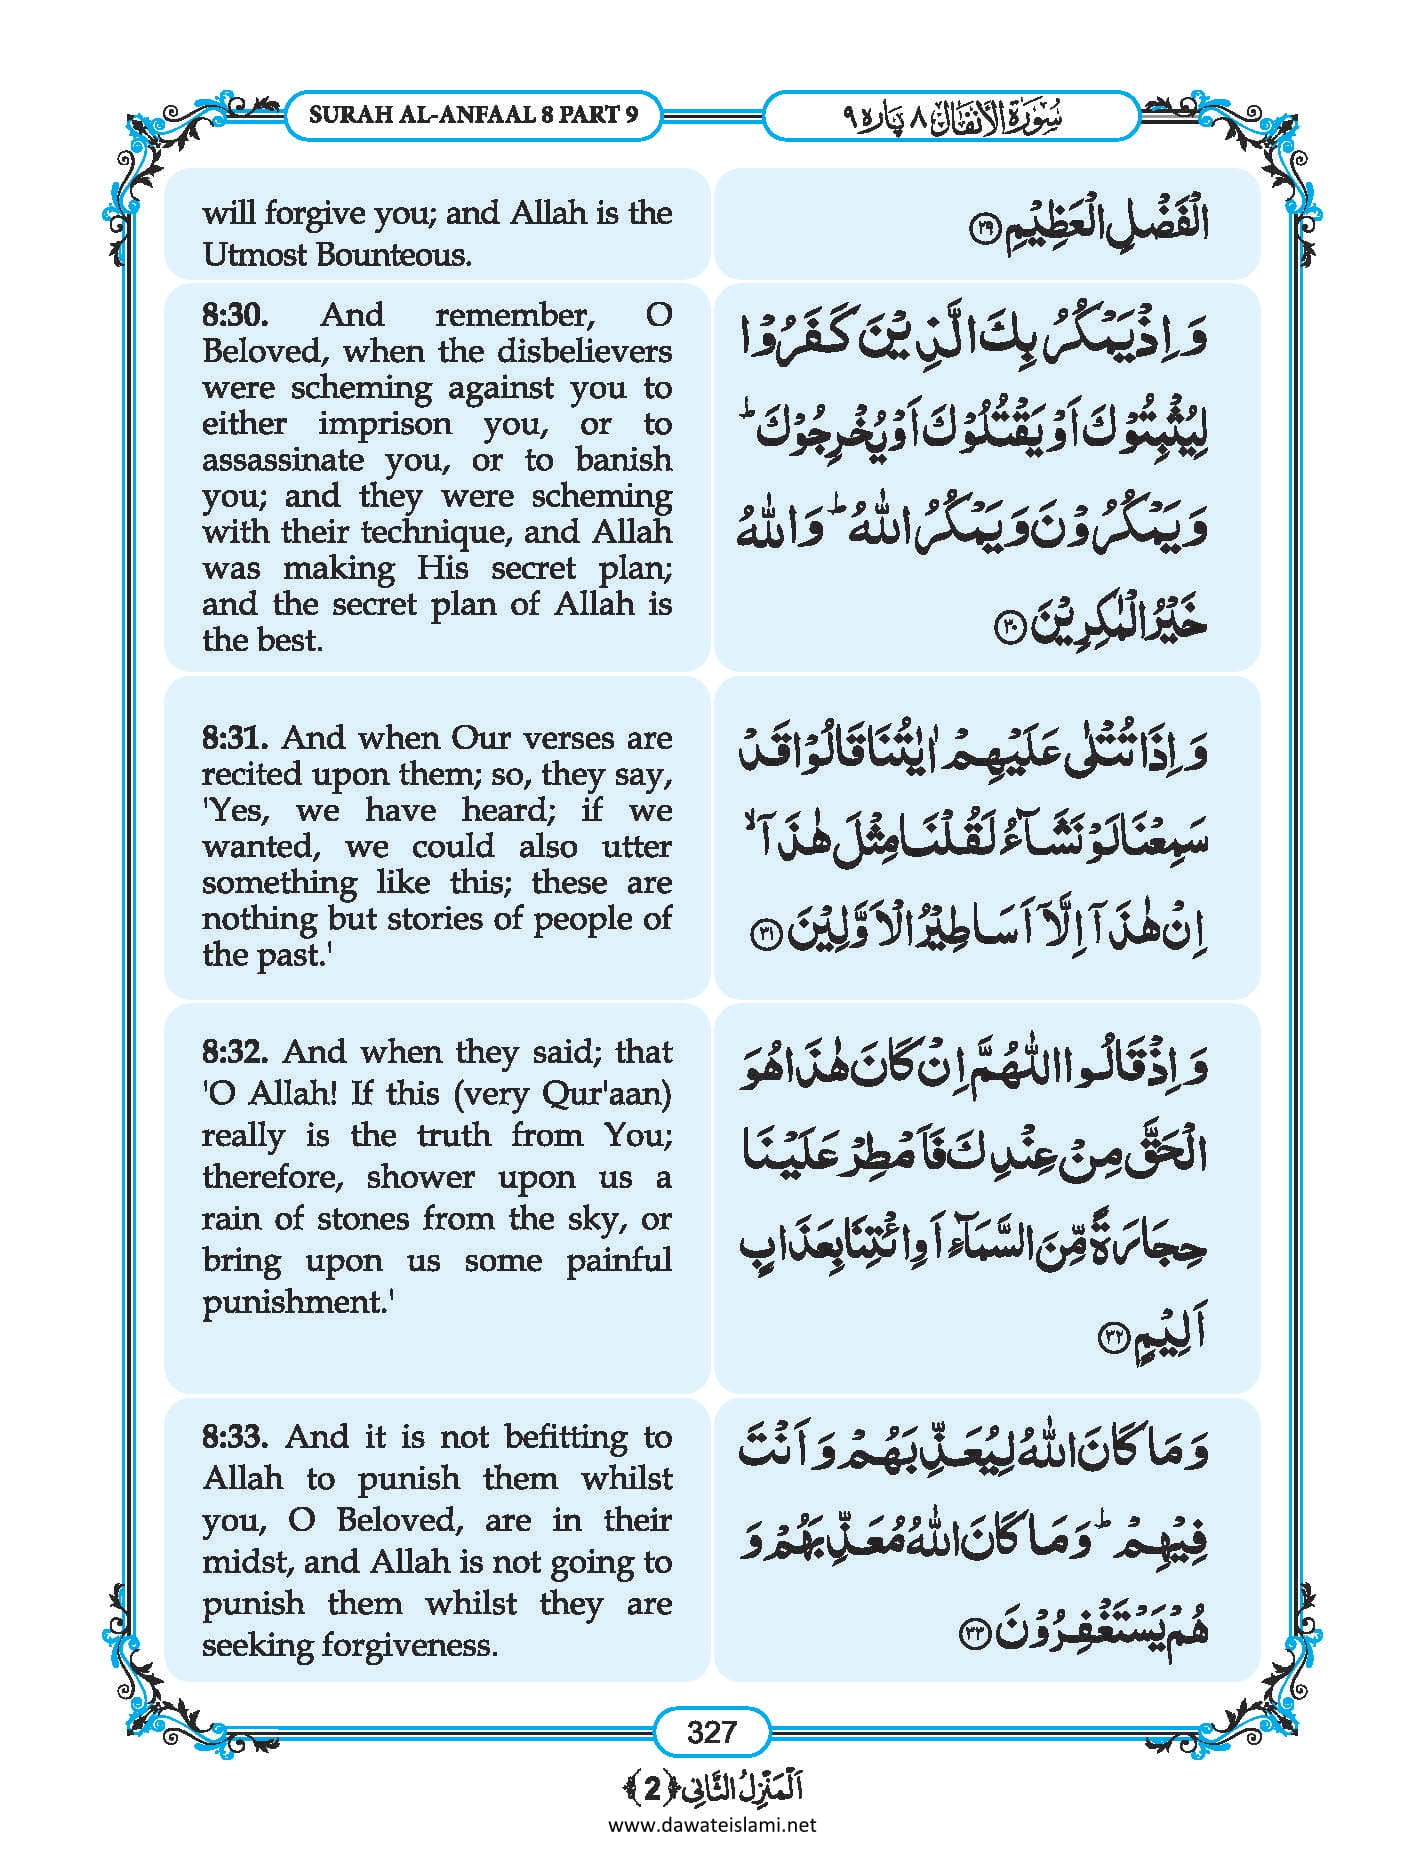 SURAH AL-ANFAAL 8 PART 9
سُوْرَةُ الْأَنْفَال ٨ پَارہ ٩
will forgive you; and Allah is the
Utmost Bounteous.
الْفَضْلِ الْعَظِيْمِ ﴿۲۹﴾
8:30. And remember, O
Beloved, when the disbelievers
were scheming against you to
either imprison you, or to
assassinate you, or to banish
you; and they were scheming
with their technique, and Allah
was making His secret plan;
and the secret plan of Allah is
the best.
وَ اِذْ یَمْكُرُ بِكَ الَّذِیْنَ كَفَرُوْا
لِیُثْبِتُوْكَ اَوْ یَقْتُلُوْكَ اَوْ یُخْرِجُوْكَؕ
وَ یَمْكُرُوْنَ وَ یَمْكُرُ اللّٰهُؕ وَ اللّٰهُ
خَیْرُ الْمٰكِرِیْنَ ﴿۳۰﴾
8:31. And when Our verses are
recited upon them; so, they say,
'Yes, we have heard; if we
wanted, we could also utter
something like this; these are
nothing but stories of people of
the past.'
وَ اِذَا تُتْلٰى عَلَیْهِمْ اٰیٰتُنَا قَالُوْا قَدْ
سَمِعْنَا لَوْ نَشَآءُ لَقُلْنَا مِثْلَ هٰذَاۤۙ
اِنْ هٰذَاۤ اِلَّاۤ اَسَاطِیْرُ الْاَوَّلِیْنَ ﴿۳۱﴾
8:32. And when they said; that
'O Allah! If this (very Qur'aan)
really is the truth from You;
therefore, shower upon us a
rain of stones from the sky, or
bring upon us some painful
punishment.'
وَ اِذْ قَالُوا اللّٰهُمَّ اِنْ كَانَ هٰذَا هُوَ
الْحَقَّ مِنْ عِنْدِكَ فَاَمْطِرْ عَلَیْنَا
حِجَارَةً مِّنَ السَّمَآءِ اَوِ ائْتِنَا بِعَذَابٍ
اَلِیْمٍ ﴿۳۲﴾
8:33. And it is not befitting to
Allah to punish them whilst
you, O Beloved, are in their
midst, and Allah is not going to
punish them whilst they are
seeking forgiveness.
وَ مَا كَانَ اللّٰهُ لِیُعَذِّبَهُمْ وَ اَنْتَ
فِیْهِمْؕ وَ مَا كَانَ اللّٰهُ مُعَذِّبَهُمْ وَ
هُمْ یَسْتَغْفِرُوْنَ ﴿۳۳﴾
327
اَلْمَنْزِلُ الثَّانِی ﴿2﴾
www.dawateislami.net